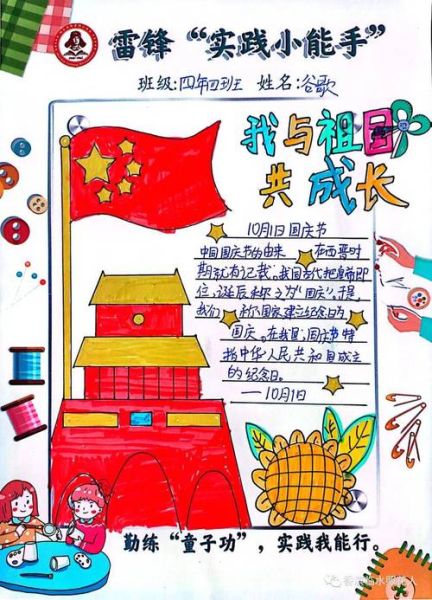 雷锋“实践小能手”
班级:四年四班 姓名:谷歌
我与祖国
共成长
10月1日国庆节
中国国庆节的由来 在西晋时
期就有记载，我国古代把皇帝即
位、诞辰称为“国庆”。于是，
我们称国家建立纪念日为
国庆。在我国，国庆节特
指中华人民共和国成立
的纪念日。
——10月1日
勤练“童子功”，实践我能行。